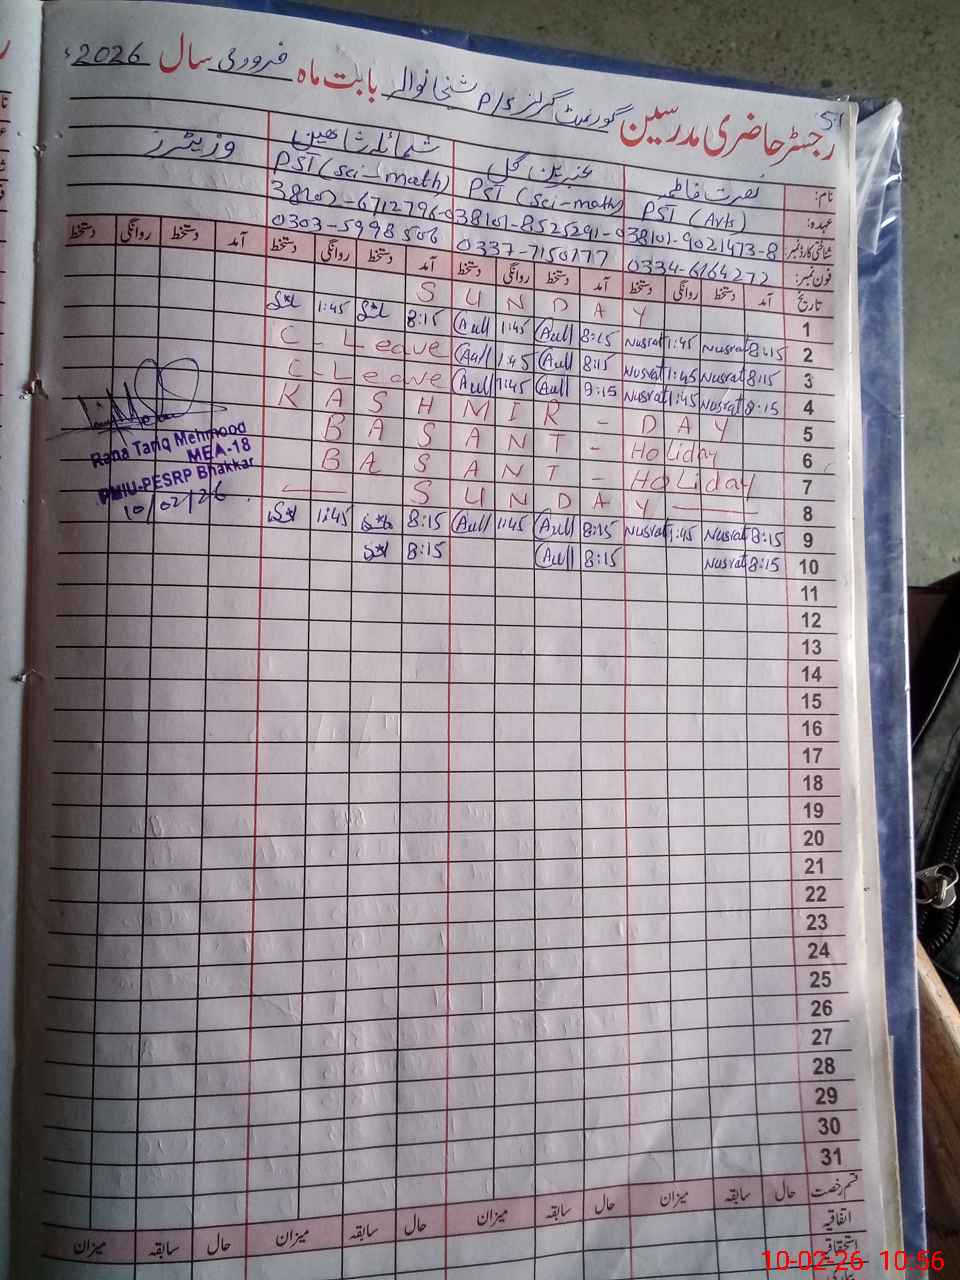 51
رجسٹر حاضری مدرسین گورنمنٹ گرلز P/S شنجانوالہ بابت ماہ فروری سال 2026ء
نام: نصرت فاطمہ عنبرین گل شمائلہ شاھین وزیٹرز
عہدہ: PST (Arts) PST (Sci-math) PST (Sci-math)
شناختی کارڈ نمبر: 38101-9021473-8 38101-8525291-0 38101-6712796-0
فون نمبر: 0334-6164272 0337-7150177 0303-5998506
تاریخ آمد دستخط روانگی دستخط آمد دستخط روانگی دستخط آمد دستخط روانگی دستخط آمد دستخط روانگی دستخط
1 SUNDAY
2 8:15 Nusrat 1:45 Nusrat 8:15 Aull 1:45 Aull 8:15 1:45
3 8:15 Nusrat 1:45 Nusrat 8:15 Aull 1:45 Aull C-Leave
4 8:15 Nusrat 1:45 Nusrat 8:15 Aull 1:45 Aull C-Leave
5 KASHMIR - DAY
6 BASANT - Holiday
7 BASANT - HOLiday
8 — SUNDAY —
9 8:15 Nusrat 1:45 Nusrat 8:15 Aull 1:45 Aull 8:15 1:45
10 8:15 Nusrat 8:15 Aull 8:15
Rana Tariq Mehmood
MEA-18
PMIU-PESRP Bhakkar
10/02/26
11
12
13
14
15
16
17
18
19
20
21
22
23
24
25
26
27
28
29
30
31
قسم رخصت حال سابقہ میزان حال سابقہ میزان حال سابقہ میزان حال سابقہ میزان
اتفاقیہ
استحقاقیہ
10-02-26 10:56